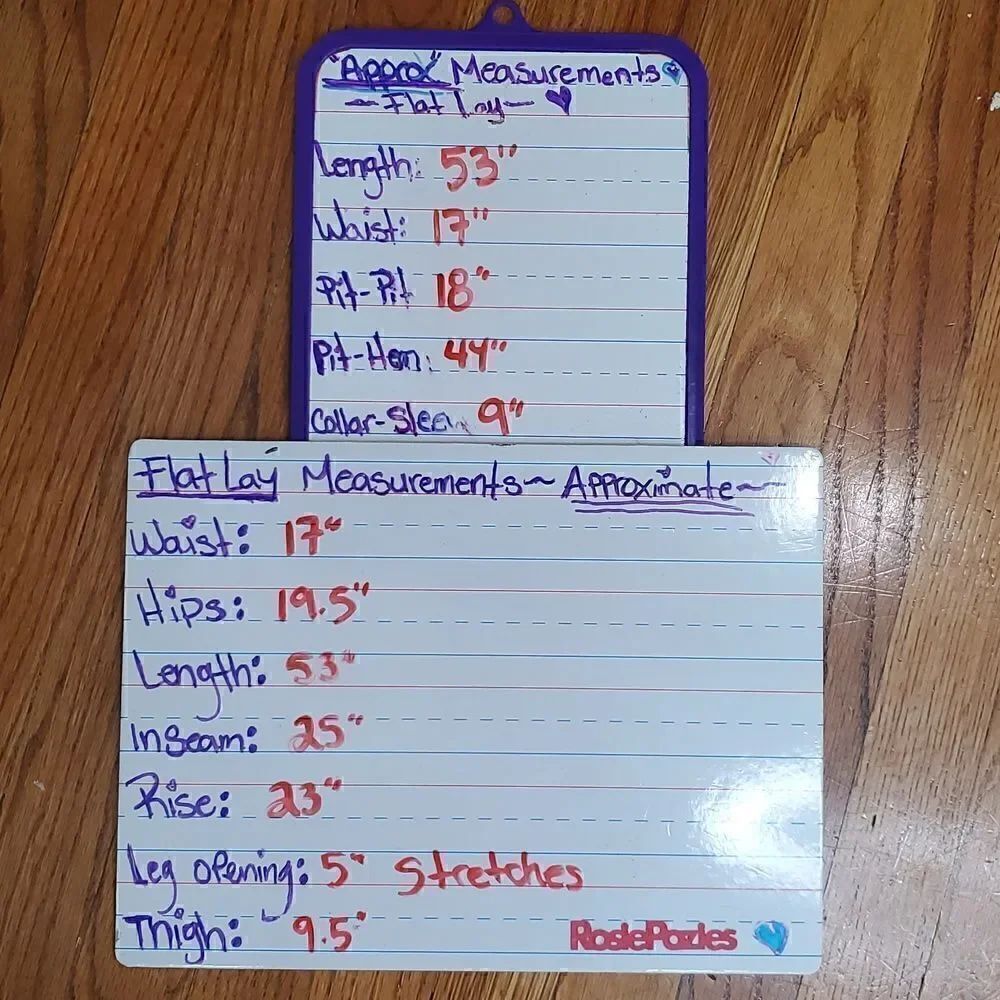 "Approx" Measurements
~Flat Lay~
Length: 53"
Waist: 17"
Pit-Pit 18"
Pit-Hem: 44"
Collar-Slee 9"
Flat Lay Measurements~ Approximate~~
Waist: 17"
Hips: 19.5"
Length: 53"
Inseam: 25"
Rise: 23"
Leg opening: 5" Stretches
Thigh: 9.5"
RosiePozies